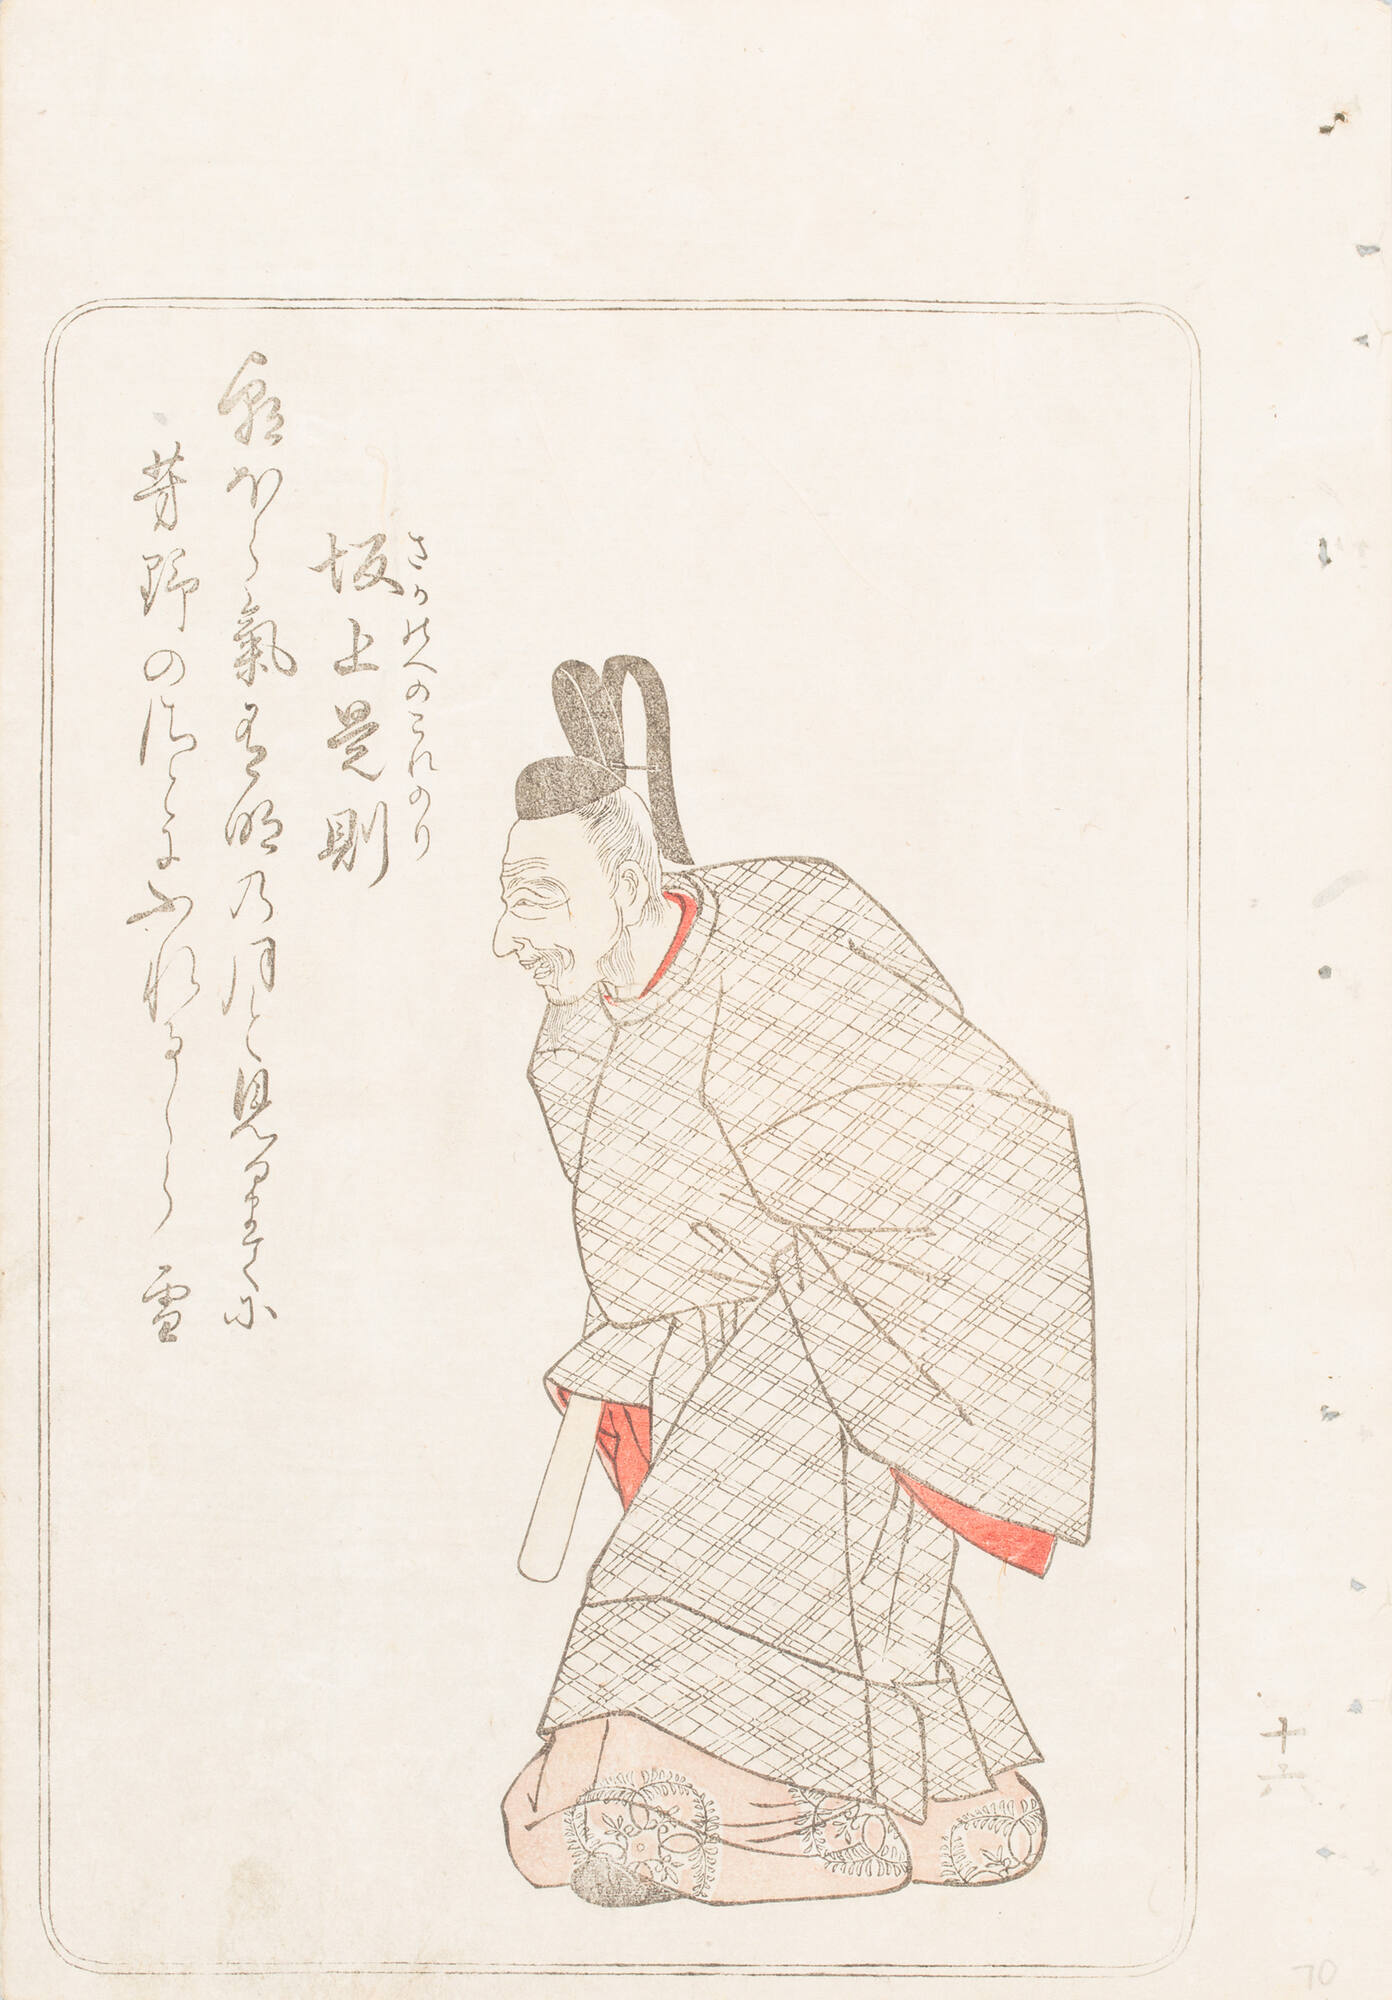 さかのへのこれのり
坂上是則
朝ほらけ有明の月と見るまてに
芳野のさとにふれるしら雪
十六
70